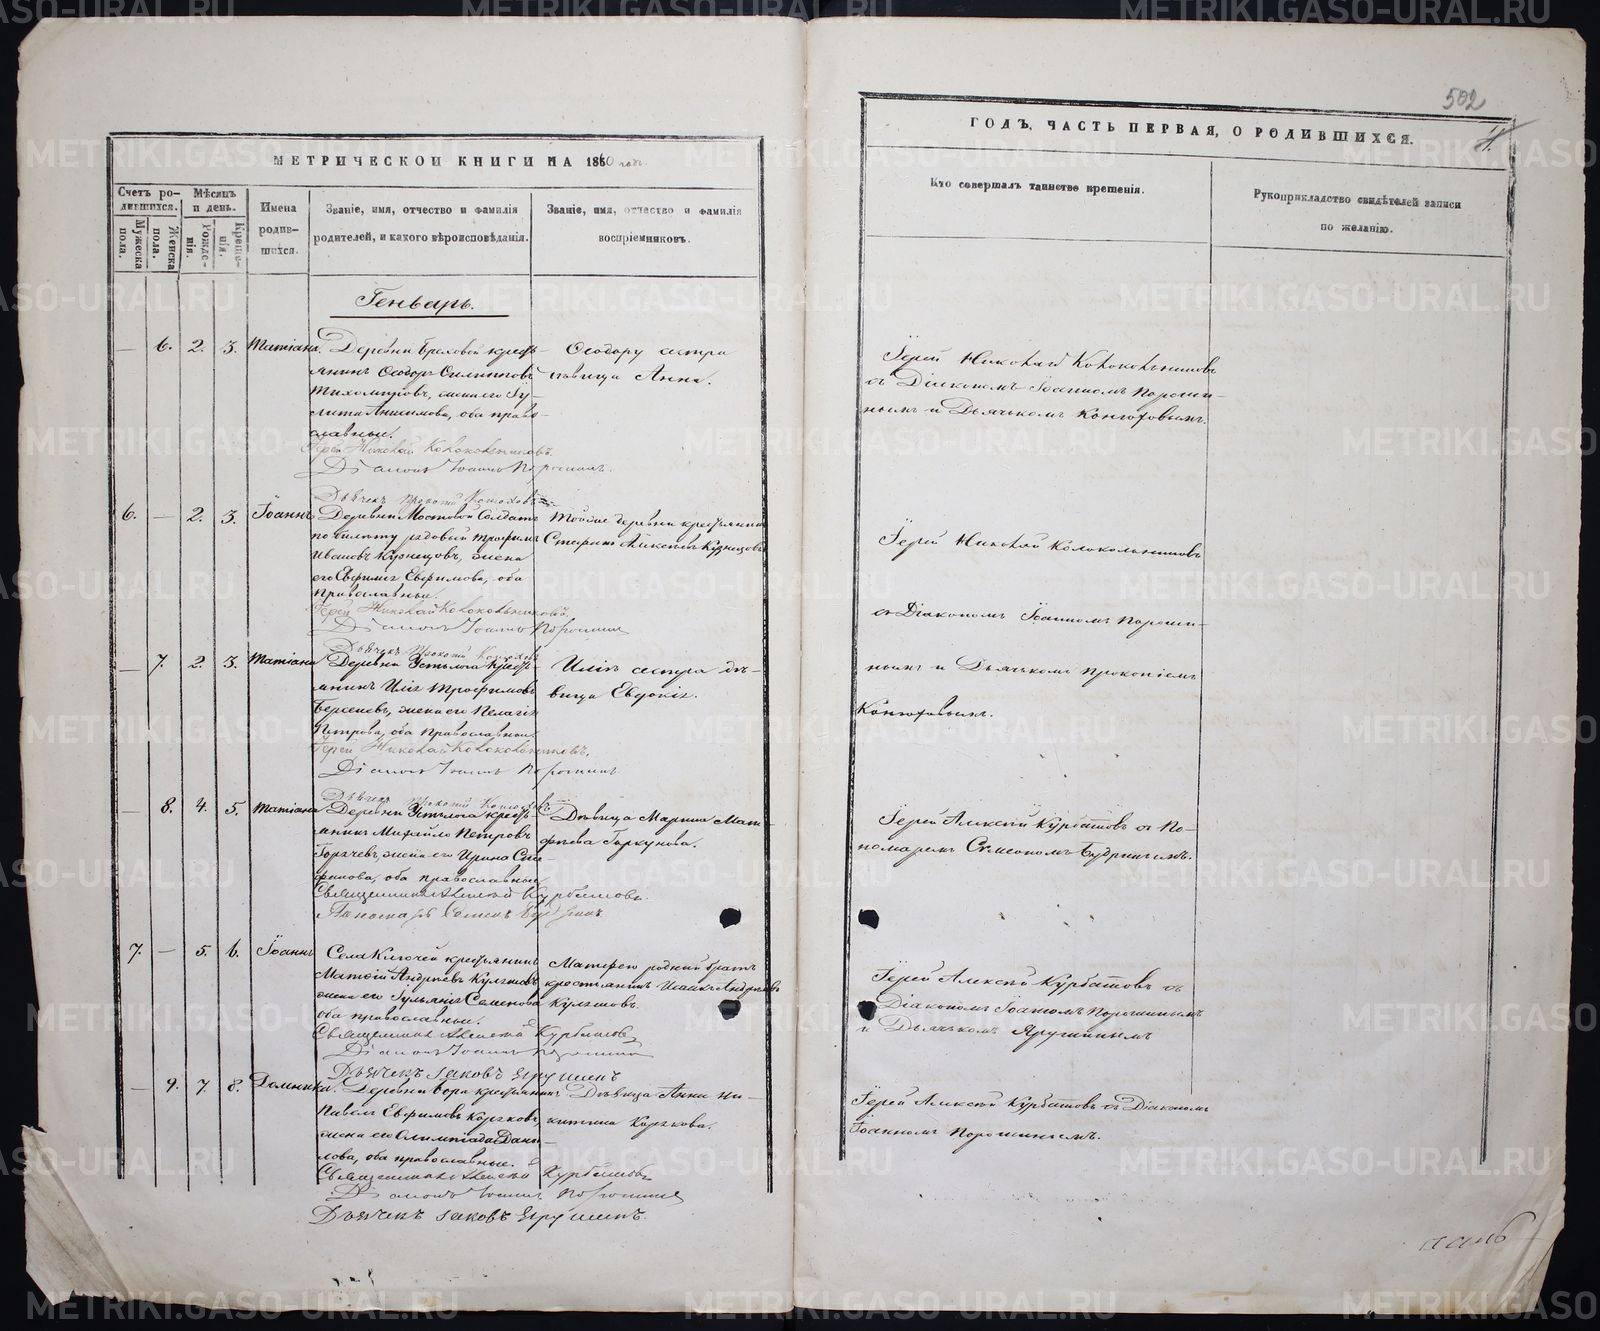 МЕТРИЧЕСКОЙ КНИГИ НА 1860 годъ.
Счетъ ро-
дившихся.
Мужеска
пола.
Женска
пола.
Мѣсяцъ
и день.
Рожде-
нія.
Креще-
нія.
Имена
родив-
шихся.
Званіе, имя, отчество и фамилія
родителей, и какого вѣроисповѣданія.
Званіе, имя, отчество и фамилія
воспріемниковъ.
Генварь.
— 6. 2. 3. Татіана.
Деревни кресть-
янинъ Ѳеодоръ Филипповъ
Тихомировъ, жена его Іу-
литта Анисимова, оба право-
славные.
Іерей Николай Колокольниковъ.
Діаконъ Іоаннъ Порошинъ.
Дьячекъ Прокопій Конюховъ
Ѳеодору сестра
дѣвица Анна.
6. — 2. 3. Іоаннъ
Деревни Мостовой Солдатъ
по билету рядовой Трофимъ
Ивановъ Кузнецовъ, жена
его Евфимія Евфимова, оба
православные.
Іерей Николай Колокольниковъ.
Діаконъ Іоаннъ Порошинъ
Дьячекъ Прокопій Конюховъ
Тойже деревни крестьянинъ
Стефанъ Алексѣевъ Кузнецовъ
— 7. 2. 3. Татіана
Деревни кресть-
янинъ Илія Трофимовъ
Берсеневъ, жена его Пелагія
Петрова, оба православные.
Іерей Николай Колокольниковъ.
Діаконъ Іоаннъ Порошинъ
Дьячекъ Прокопій Конюховъ
Иліи сестра дѣ-
вица Евдокія.
— 8. 4. 5. Татіана
Деревни кресть-
янинъ Михаилъ Петровъ
Горячевъ, жена его Ирина
оба православные.
Священникъ Алексѣй Курбатовъ.
Пономарь Семенъ
Дѣвица Марина Мат-
фіева Горкунова.
7. — 5. 6. Іоаннъ
Села Ключей крестьянинъ
Матѳій Андреевъ Кулешовъ
жена его Іуліанія Семенова
оба православные.
Священникъ Алексѣй Курбатовъ
Діаконъ Іоаннъ Порошинъ
Дьячекъ Іаковъ Ярушинъ
Матфею родной братъ
крестьянинъ Исаакъ Андреевъ
Кулешовъ.
— 9. 7. 8. Домника.
Деревни крестьянинъ
Павелъ Евфимовъ Коржковъ,
жена его Олимпіада Дани-
лова, оба православные.
Священникъ Алексѣй Курбатовъ
Діаконъ Іоаннъ Порошинъ
Дьячекъ Іаковъ Ярушинъ.
Дѣвица Анна Ни-
китина Коржкова.
502
ГОДЪ, ЧАСТЬ ПЕРВАЯ, О РОДИВШИХСЯ.
Кто совершалъ таинство крещенія.
Рукоприкладство свидѣтелей записи
по желанію.
Іерей Николай Колокольниковъ
съ Діакономъ Іоанномъ Пороши-
нымъ и Дьячькомъ Конюховымъ.
Іерей Николай Колокольниковъ
съ Діакономъ Іоанномъ Пороши-
нымъ и Дьячькомъ Прокопіемъ
Конюховымъ.
Іерей Алексѣй Курбатовъ съ По-
номаремъ Симеономъ
Іерей Алексѣй Курбатовъ съ
Діакономъ Іоанномъ Порошинымъ
и Дьячькомъ Ярушинымъ
Іерей Алексѣй Курбатовъ съ Діакономъ
Іоанномъ Порошинымъ.
METRIKI.GASO-URAL.RU